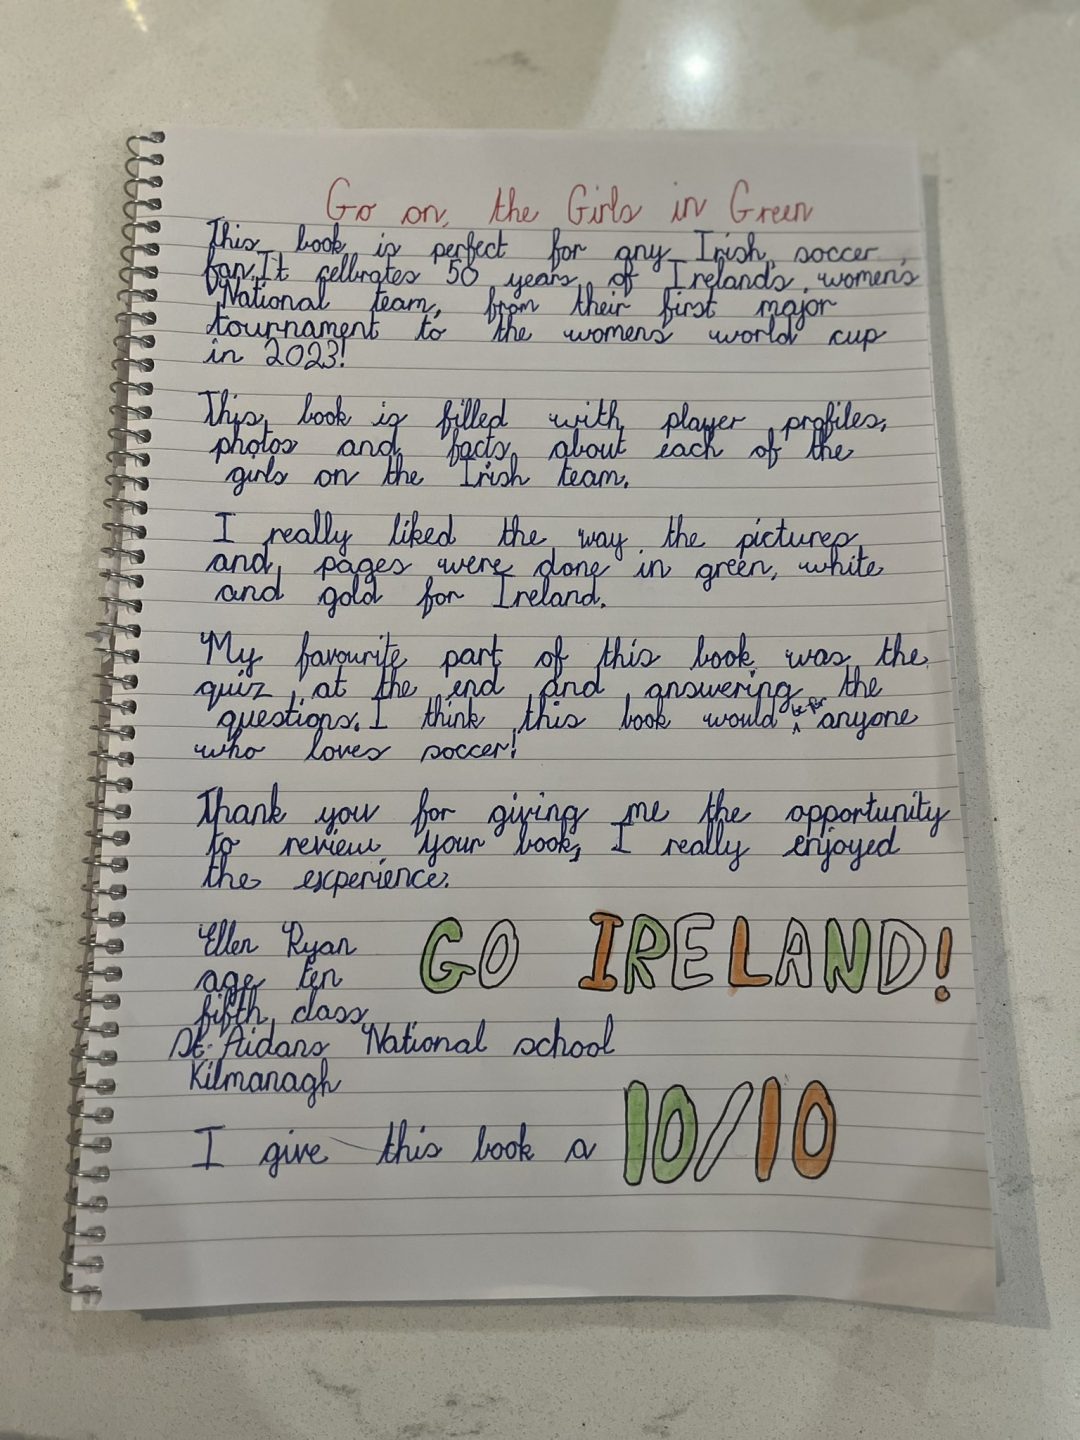 Go on, the Girls in Green
This book is perfect for any Irish soccer
fan. It cellbrates 50 years of Irelands women's
National team, from their first major
tournament to the womens world cup
in 2023!
This book is filled with player profiles,
photos and facts about each of the
girls on the Irish team.
I really liked the way the pictures
and pages were done in green, white
and gold for Ireland.
My favourite part of this book was the
quiz at the end and answering the
questions. I think this book would be for anyone
who loves soccer!
Thank you for giving me the opportunity
to review your book, I really enjoyed
the experience.
Ellen Ryan
age ten
fifth class
St. Aidans National school
Kilmanagh
GO IRELAND!
I give this book a 10/10